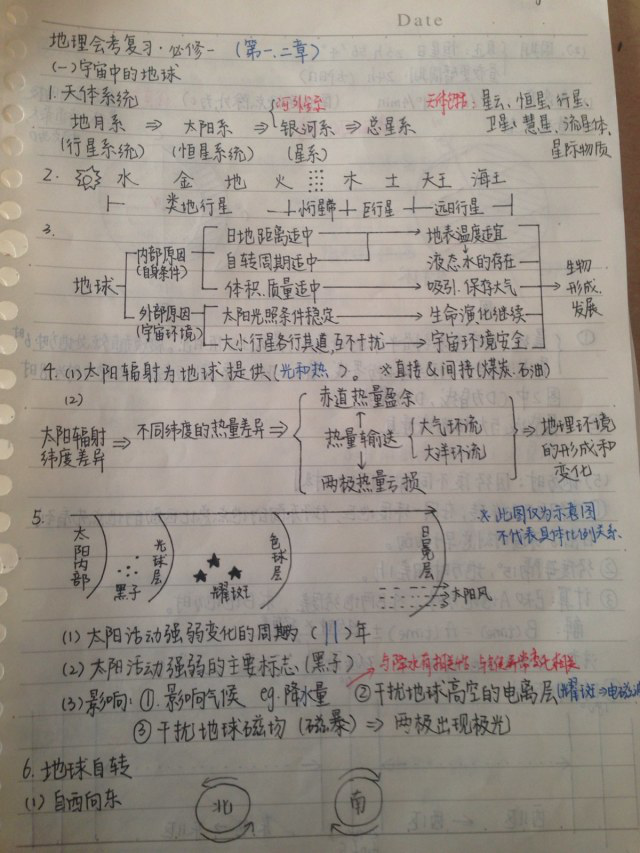 Date
地理会考复习·必修一 (第一、二章)
(一)宇宙中的地球
1.天体系统 河外星系 天体包括:星云、恒星、行星、
地月系 ⇒ 太阳系 ⇒ 银河系 ⇒ 总星系 卫星、慧星、流星体、
(行星系统) (恒星系统) (星系) 星际物质
2. 水 金 地 火 木 土 天王 海王
类地行星 小行星带 巨行星 远日行星
3.
日地距离适中 地表温度适宜
内部原因
(自身条件)
自转周期适中 液态水的存在
地球 体积、质量适中 吸引、保存大气 生物形成、发展
外部原因
(宇宙环境)
太阳光照条件稳定 生命演化继续
大小行星各行其道,互不干扰 宇宙环境安全
4. (1)太阳辐射为地球提供(光和热)。 ※直接&间接(煤炭、石油)
(2) 赤道热量盈余
太阳辐射纬度差异 ⇒ 不同纬度的热量差异 ⇒ 热量输送 大气环流 大洋环流 ⇒ 地理环境的形成和变化
两极热量亏损
5.
太阳内部 光球层 色球层 日冕层 ※此图仅为示意图
不代表具体比例关系.
黑子 耀斑 太阳风
(1) 太阳活动强弱变化的周期为 (11)年
(2) 太阳活动强弱的主要标志(黑子) 与降水有相关性、
(3)影响:①.影响气候 eg.降水量 ②干扰地球高空的电离层(耀斑→电磁波
③干扰地球磁场 (磁暴) ⇒ 两极出现极光
6.地球自转
(1) 自西向东 北 南